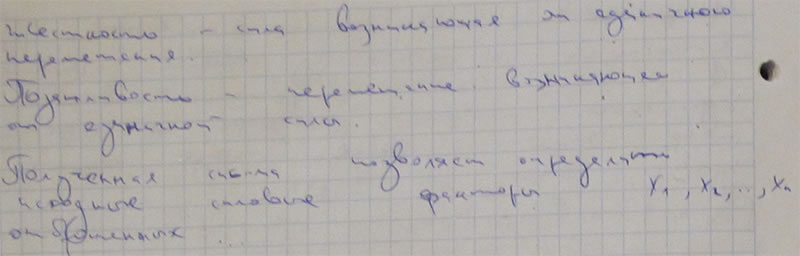 Жесткость – сила возникающая от единичного
перемещения.
Податливость – перемещение возникающее
от единичной силы.
Полученная система позволяет определить
исходные силовые факторы X₁, X₂, .., Xₙ
отброшенных ...